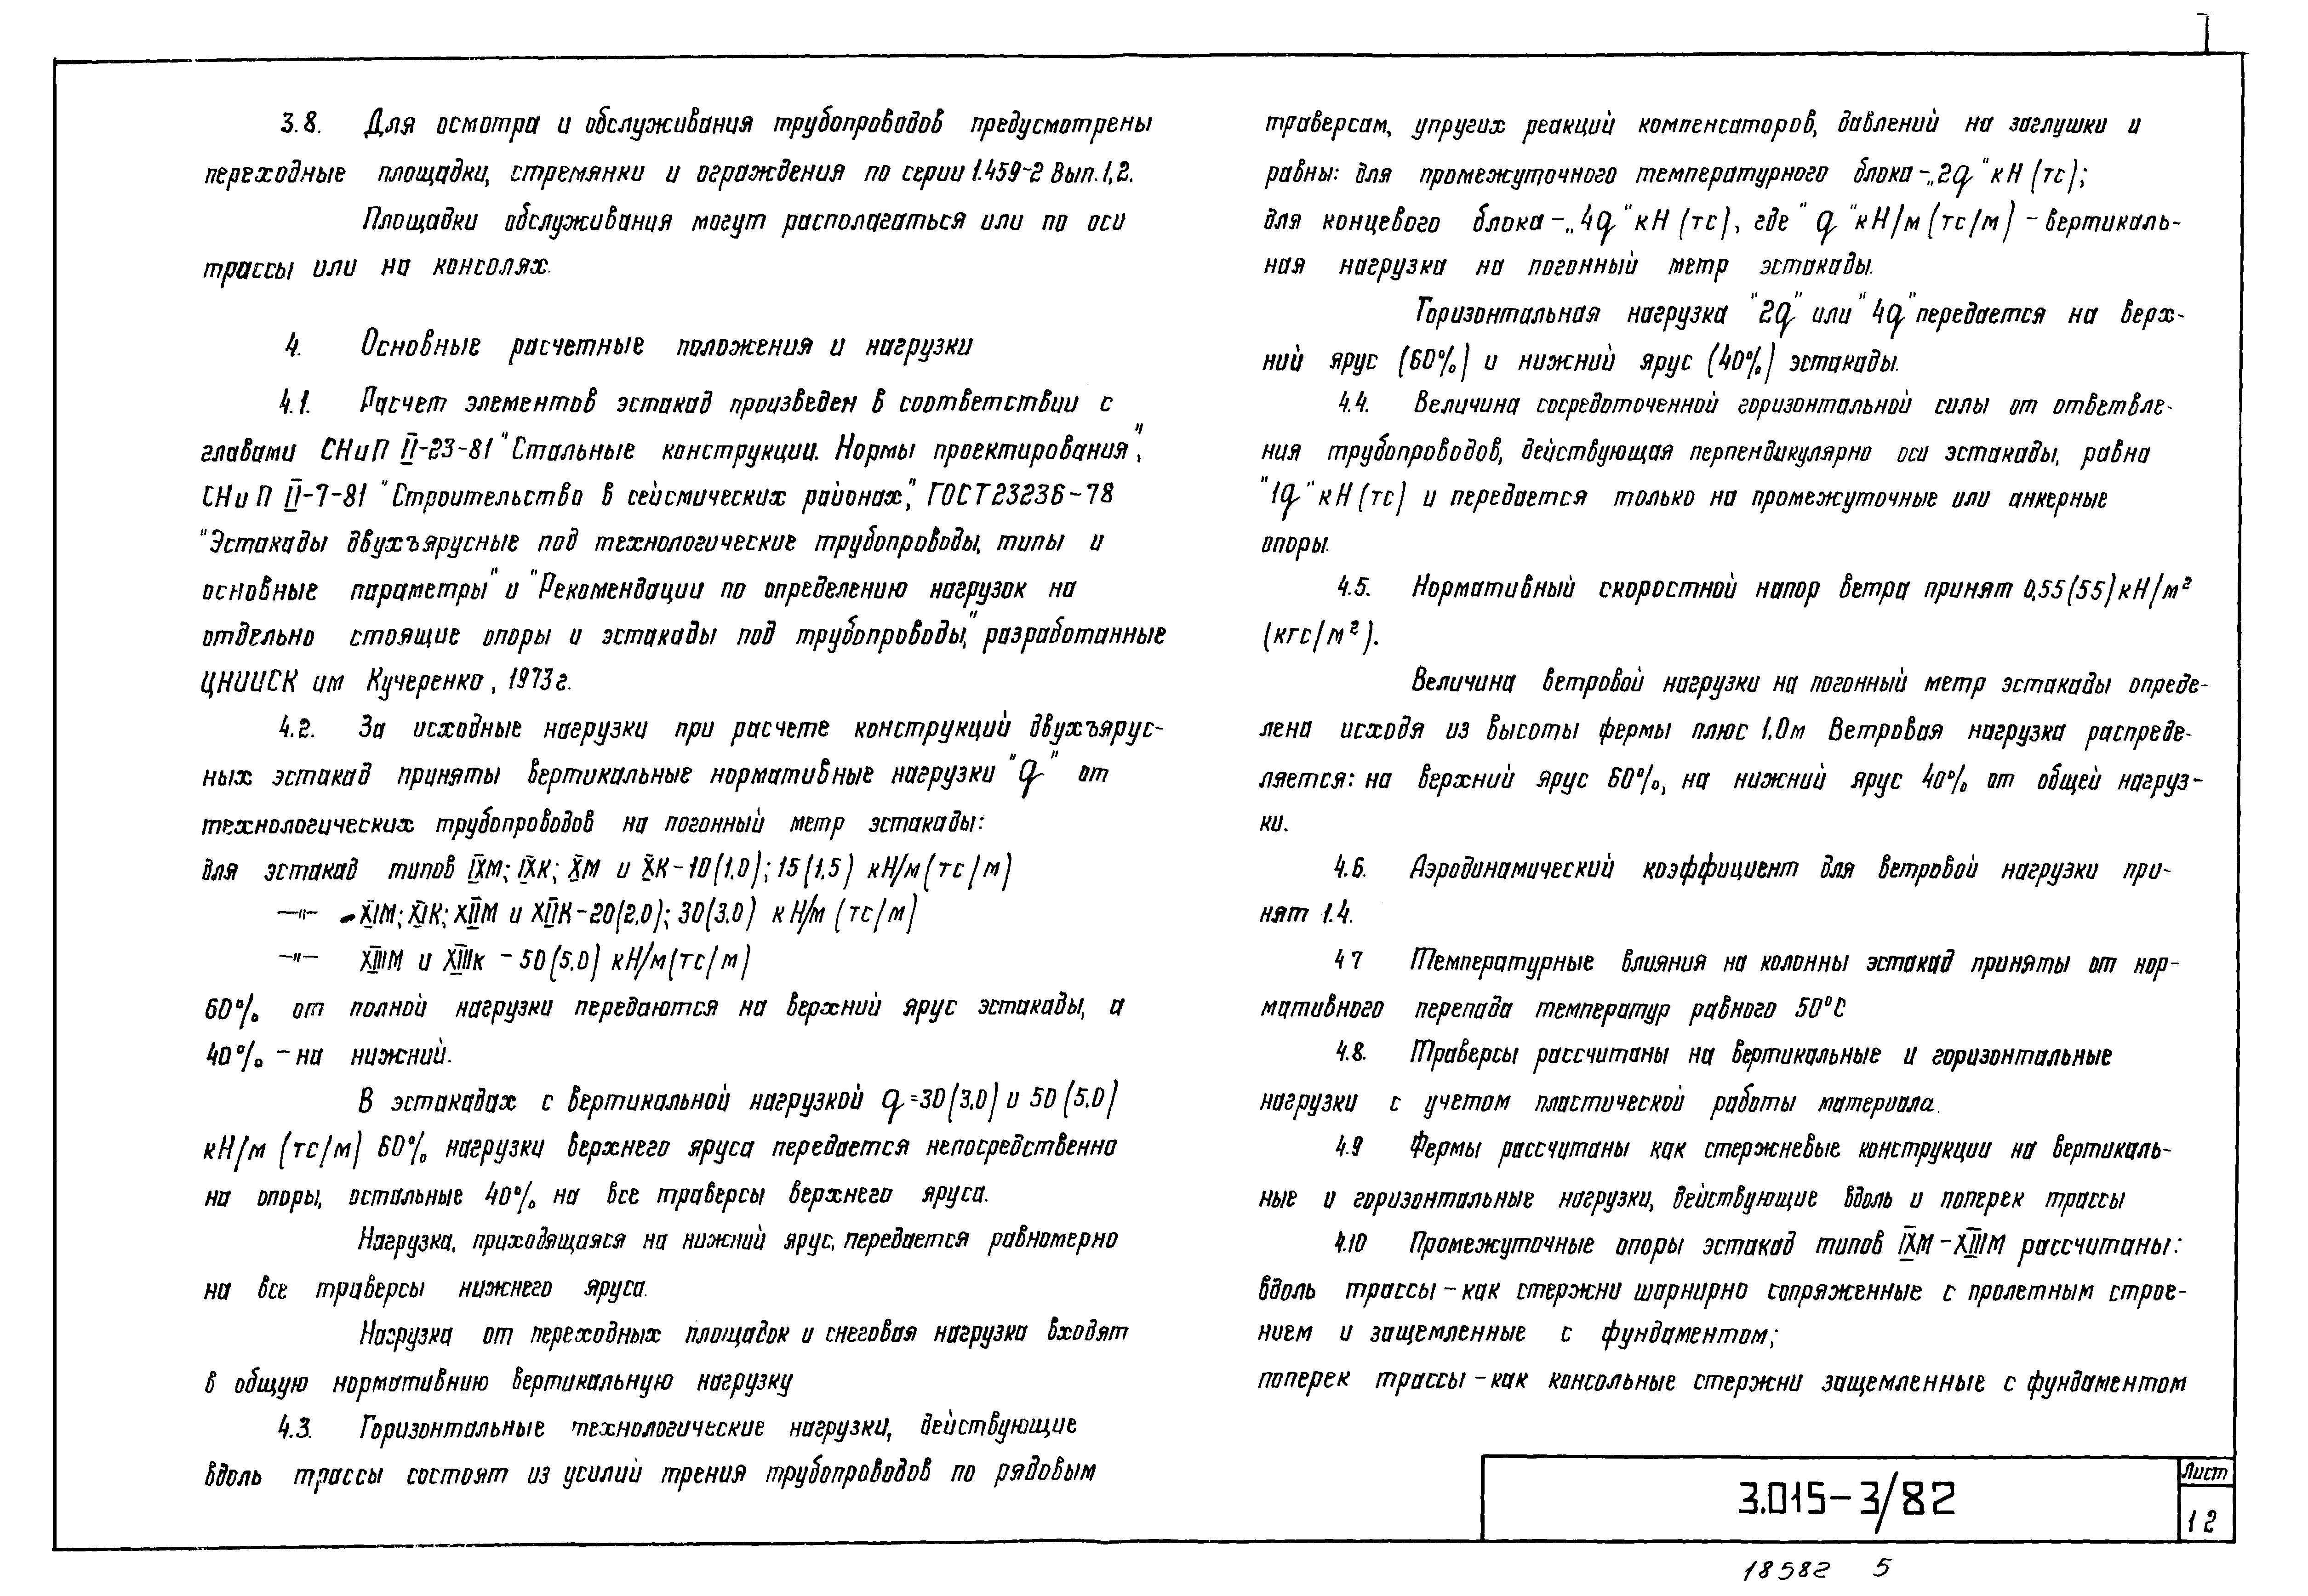 3.8. Для осмотра и обслуживания трубопроводов предусмотрены
переходные площадки, стремянки и ограждения по серии 1.459-2 Вып. 1,2.
Площадки обслуживания могут располагаться или по оси
трассы или на консолях.
4. Основные расчетные положения и нагрузки
4.1. Расчет элементов эстакад произведен в соответствии с
главами СНиП II-23-81 "Стальные конструкции. Нормы проектирования",
СНиП II-7-81 "Строительство в сейсмических районах", ГОСТ 23236-78
"Эстакады двухъярусные под технологические трубопроводы, типы и
основные параметры" и "Рекомендации по определению нагрузок на
отдельно стоящие опоры и эстакады под трубопроводы", разработанные
ЦНИИСК им Кучеренко, 1973г.
4.2. За исходные нагрузки при расчете конструкций двухъярус-
ных эстакад приняты вертикальные нормативные нагрузки "q" от
технологических трубопроводов на погонный метр эстакады:
для эстакад типов IXМ; IXК; XМ и XК-10(1,0); 15(1,5) кН/м (тс/м)
—"— XIМ; XIК; XIIМ и XIIК-20(2,0); 30(3,0) кН/м (тс/м)
—"— XIIIМ и XIIIк - 50(5,0) кН/м(тс/м)
60% от полной нагрузки передаются на верхний ярус эстакады, а
40% - на нижний.
В эстакадах с вертикальной нагрузкой q=30(3,0) и 50(5,0)
кН/м (тс/м) 60% нагрузки верхнего яруса передается непосредственно
на опоры, остальные 40% на все траверсы верхнего яруса.
Нагрузка, приходящаяся на нижний ярус, передается равномерно
на все траверсы нижнего яруса.
Нагрузка от переходных площадок и снеговая нагрузка входят
в общую нормативнию вертикальную нагрузку
4.3. Горизонтальные технологические нагрузки, действующие
вдоль трассы состоят из усилий трения трубопроводов по рядовым
траверсам, упругих реакций компенсаторов, давлений на заглушки и
равны: для промежуточного температурного блока -„2q" кН (тс);
для концевого блока -„4q" кН (тс), где "q" кН/м (тс/м) - вертикаль-
ная нагрузка на погонный метр эстакады.
Горизонтальная нагрузка "2q" или "4q" передается на верх-
ний ярус (60%) и нижний ярус (40%) эстакады.
4.4. Величина сосредоточенной горизонтальной силы от ответвле-
ния трубопроводов, действующая перпендикулярно оси эстакады, равна
"1q" кН (тс) и передается только на промежуточные или анкерные
опоры.
4.5. Нормативный скоростной напор ветра принят 0,55(55)кН/м²
(кгс/м²).
Величина ветровой нагрузки на погонный метр эстакады опреде-
лена исходя из высоты фермы плюс 1.0м Ветровая нагрузка распреде-
ляется: на верхний ярус 60%, на нижний ярус 40% от общей нагруз-
ки.
4.6. Аэродинамический коэффициент для ветровой нагрузки при-
нят 1.4.
4 7 Температурные влияния на колонны эстакад приняты от нор-
мативного перепада температур равного 50°С
4.8. Траверсы рассчитаны на вертикальные и горизонтальные
нагрузки с учетом пластической работы материала.
4.9 Фермы рассчитаны как стержневые конструкции на вертикаль-
ные и горизонтальные нагрузки, действующие вдоль и поперек трассы
4.10 Промежуточные опоры эстакад типов IXМ-XIIIМ рассчитаны:
вдоль трассы - как стержни шарнирно сопряженные с пролетным строе-
нием и защемленные с фундаментом;
поперек трассы - как консольные стержни защемленные с фундаментом
3.015-3/82
Лист
12
18582 5